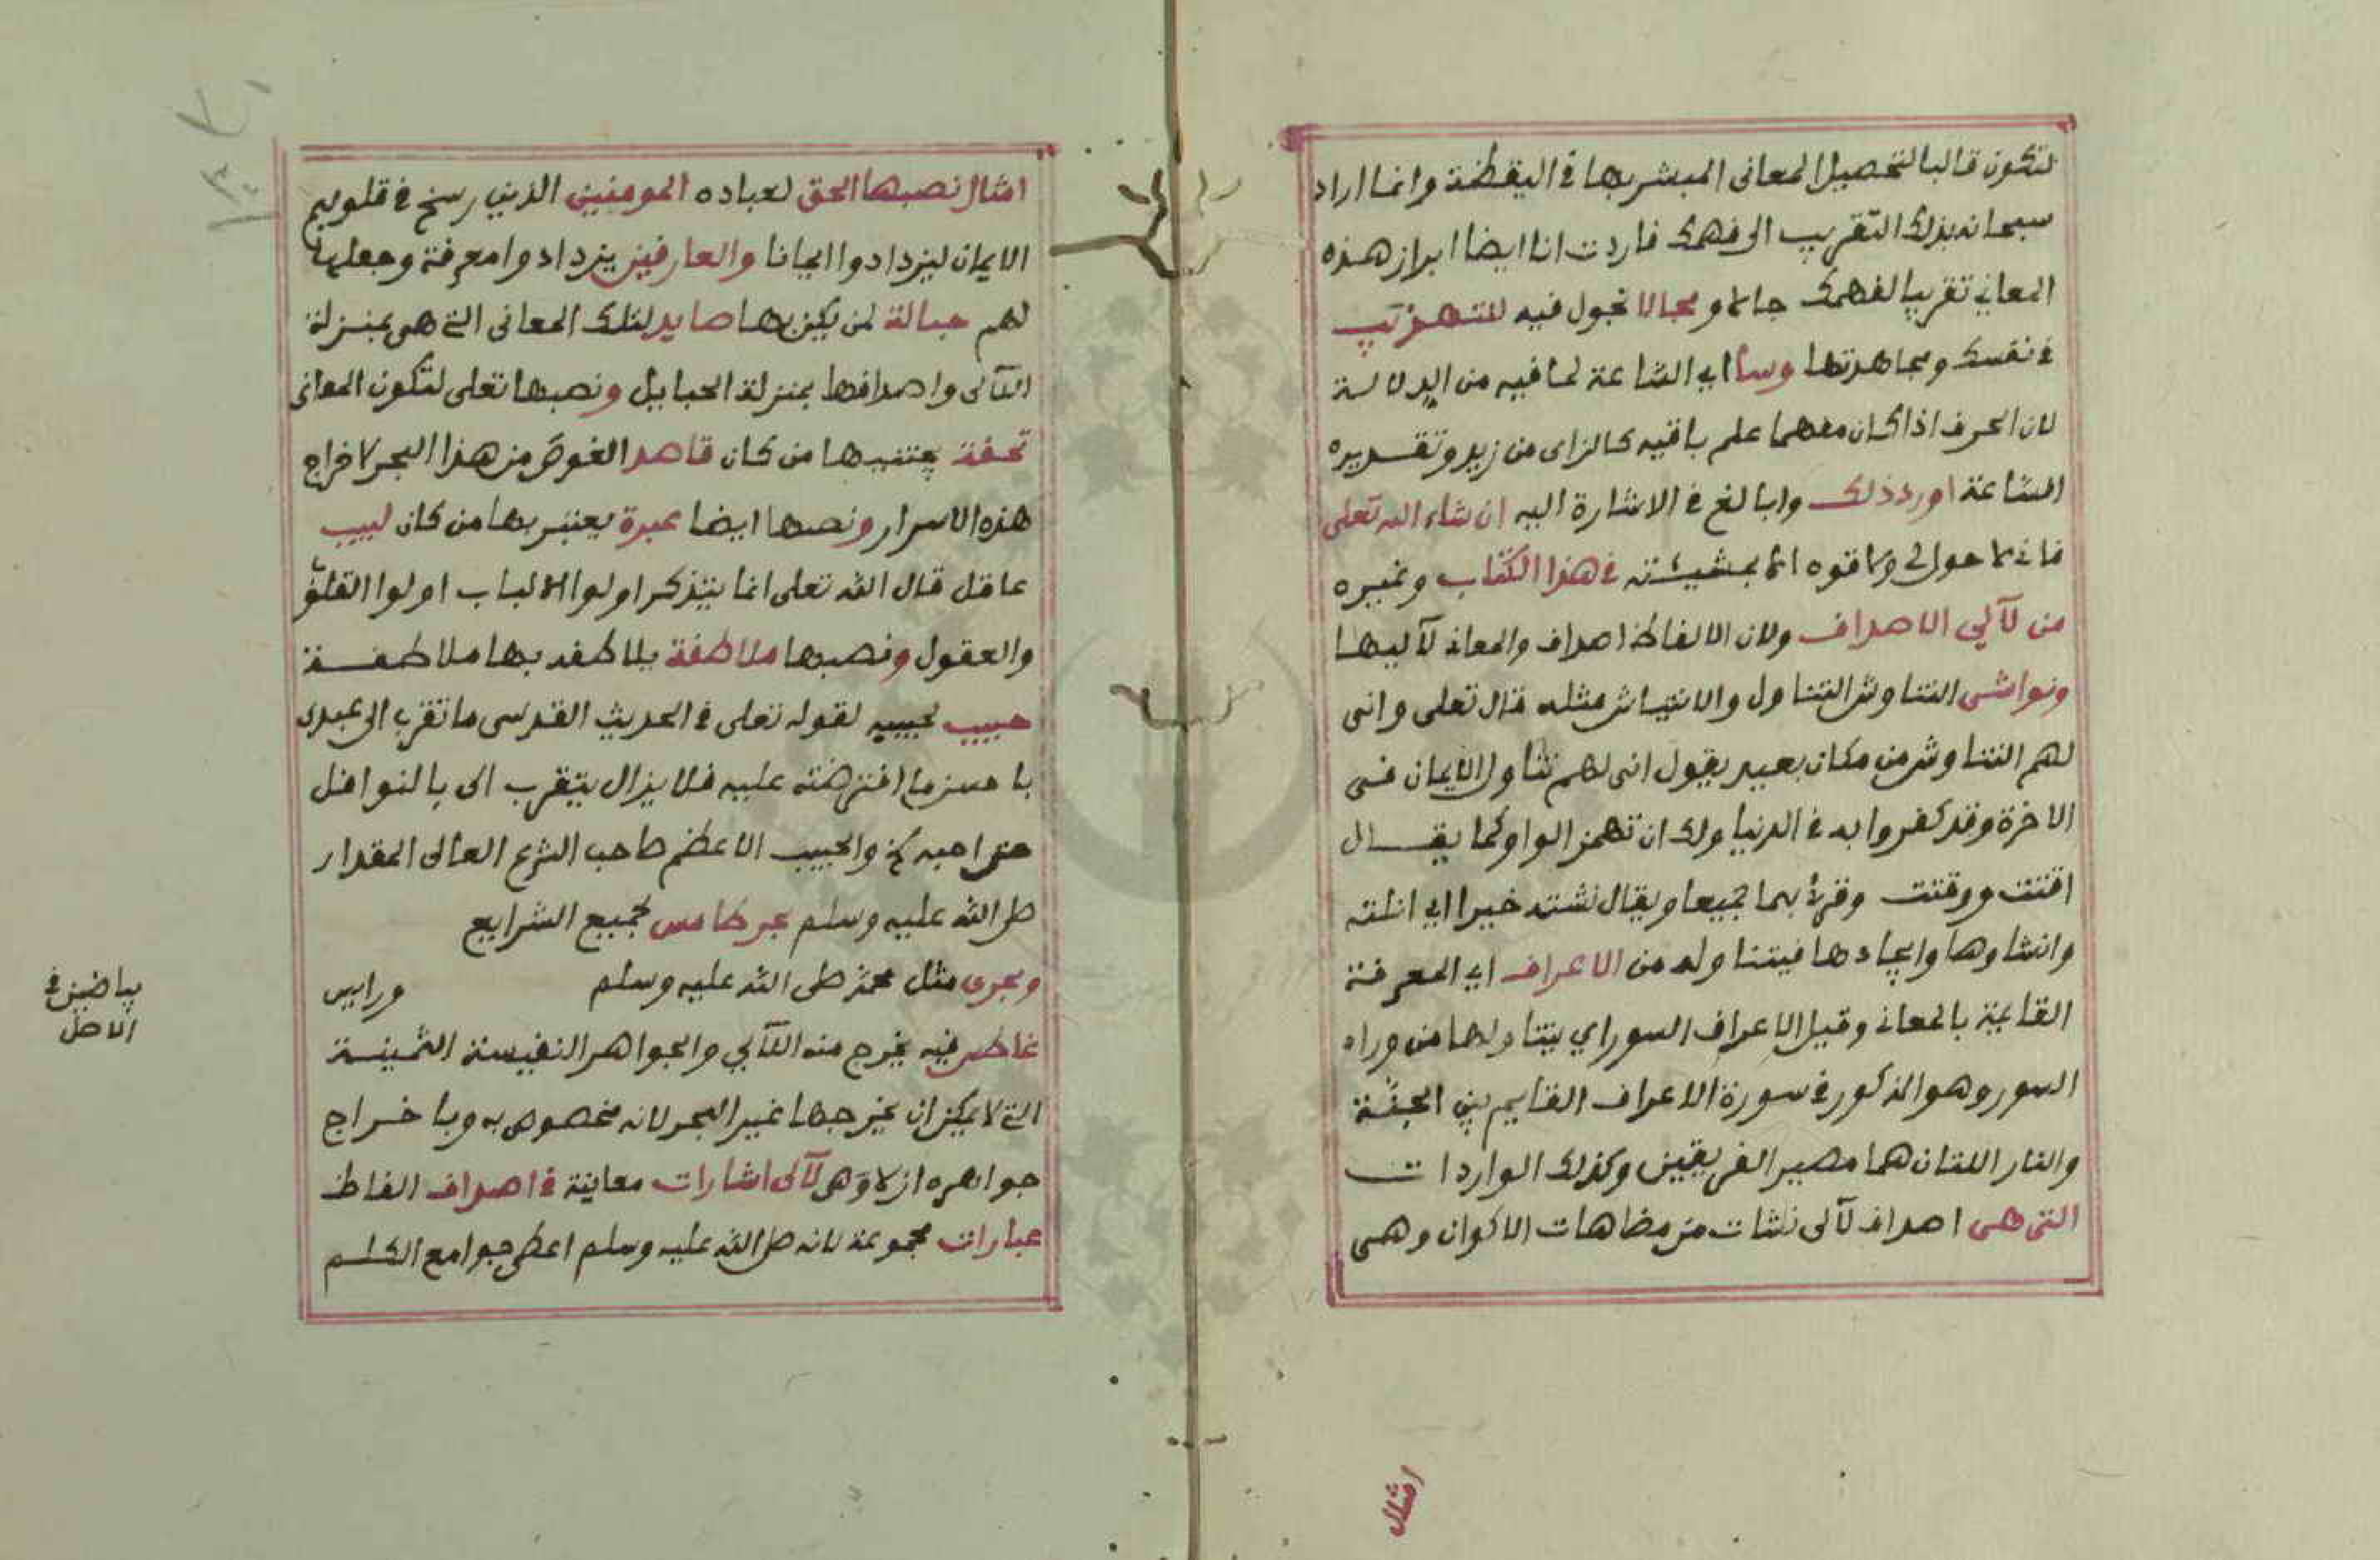 لتكون قالبا لتحصيل المعانى المبشر بها فى اليقظة وانما اراد
سبحانه بذلك التقريب الى فهمك فاردت انا ايضا ابراز هذه
المعانى تقريبا لفهمك جالا ومجالا تجول فيه للتهذيب
فى نفسك ومجاهدتها وسا اى الشاعة لما فيه من الدلالة
لان الحرف اذا كان مفهما علم باقيه كالزاى من زيد وتقديره
الشاعة اورد ذلك وابالغ فى الاشارة اليه ان شاء الله تعلى
فانى لا حول لى ولا قوه الا بمشيئته فى هذا الكتاب وغيره
من لآلى الاصداف ولان الالفاظ اصداف والمعانى لآليها
ونواشى التناوش التناول والانتياش مثله قال تعلى وانى
لهم التناوش من مكان بعيد يقول انى لهم تناول الايمان فى
الاخرة وقد كفروا به فى الدنيا ولك ان تهمز الواو كما يقال
اقتت ووقتت وقرئ بهما جميعا ويقال نشته خيرا اى انلته
وانشاوها وايجادها فيتناوله من الاعراف اى المعرفة
القايمة بالمعانى وقيل الاعراف السور اي يتناولها من وراه
السور وهو المذكور فى سورة الاعراف القايم بين الجنة
والنار اللتان هما مصير الفريقين وكذلك الواردات
التى هى اصداف لآلى نشات من مضاهات الاكوان وهى
امثال
امثال نصبها الحق لعباده المومنين الذين رسخ فى قلوبهم
الايمان ليزدادوا ايمانا والعارفين يزدادوا معرفة وجعلها
لهم حبالة لمن يكن بها صايد لتلك المعانى التى هى بمنزلة
اللآلى واصدافها بمنزلة الحبايل ونصبها تعلى لتكون المعانى
تحفة يجتنيها من كان قاصد الغوص من هذا البحر لاخراج
هذه الاسرار ونصبها ايضا عبرة يعتبر بها من كان لبيب
عاقل قال الله تعلى انما يتذكر اولوا الالباب اولوا القلوب
والعقول ونصبها ملاطفة يلاطفه بها ملاطفة
حبيب لحبيبه لقوله تعلى فى الحديث القدسى ما تقرب الى عبدى
باحسن ما افترضته عليه فلا يزال يتقرب الى بالنوافل
حتى احبه والحبيب الاعظم صاحب الشرع العالى المقدار
صلى الله عليه وسلم بحر طامس لجميع الشرايع
وبحرى مثل محمد صلى الله عليه وسلم ورايس
غاطس فيه يخرج منه اللآلي والجواهر النفيسة الثمينة
التى لا يمكن ان يخرجها غير البحر لانه مخصوص به وباخراج
جواهره ازلا وهى لآلى اشارات معاينة فى اصداف الفاظ
عبارات مجموعة لانه صلى الله عليه وسلم اعطى جوامع الكلم
بياضين فى
الاصل